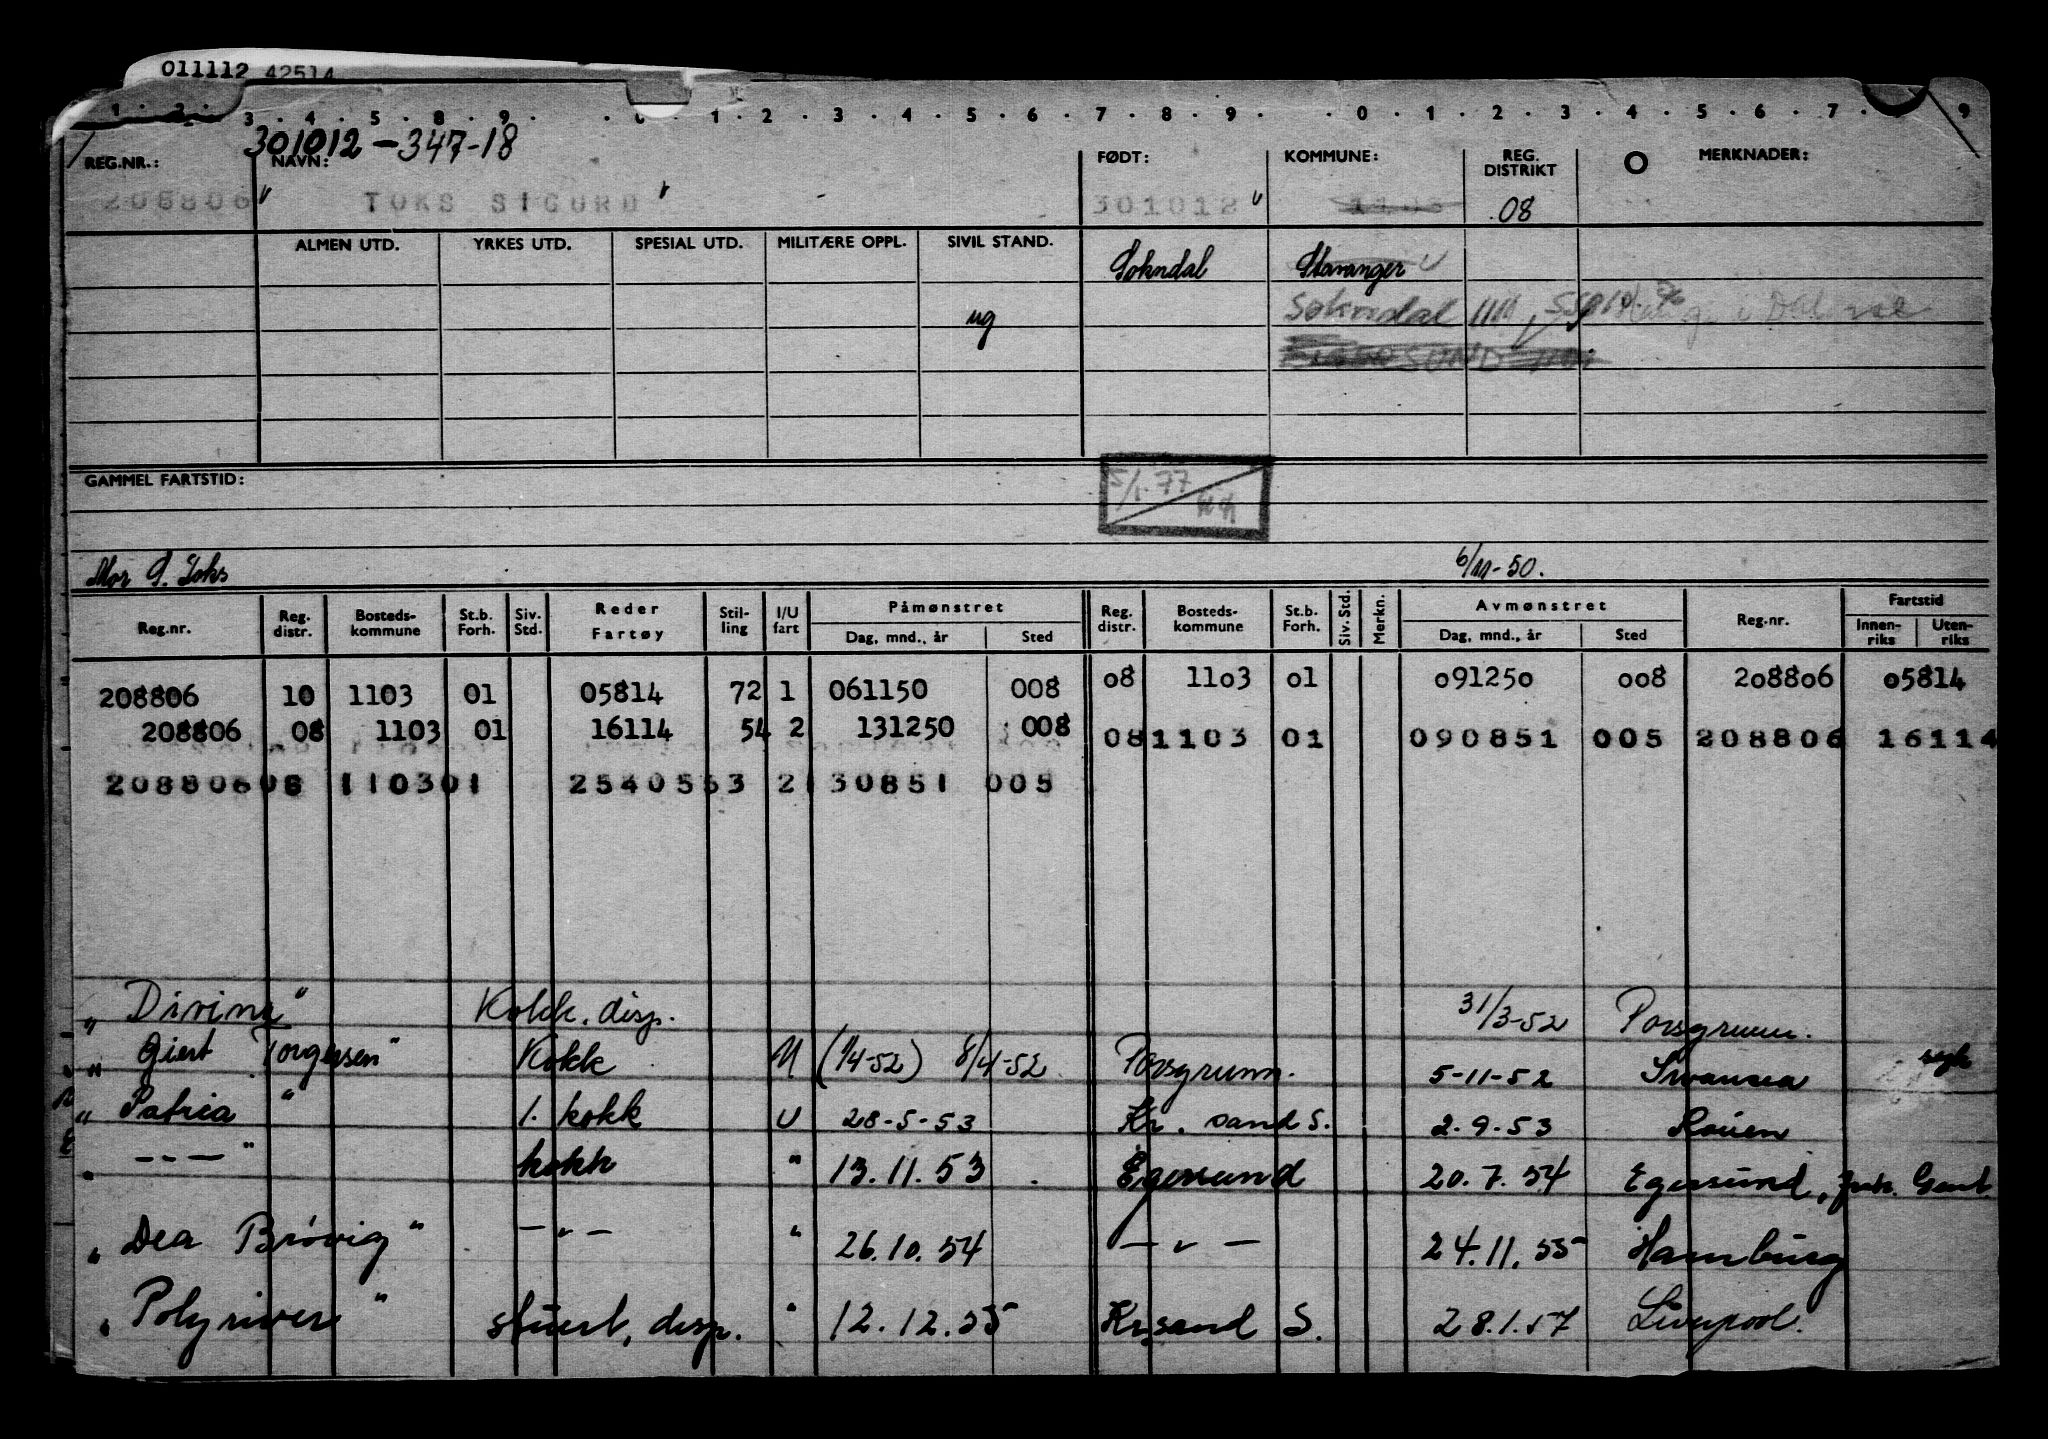 011112 42514
1 . 2 . 3 . 4 . 5 . 8 . 9 . 0 . 1 . 2 . 3 . 4 . 5 . 6 . 7 . 8 . 9 . . 0 . 1 . 2 . 3 . 4 . 5 . 6 . 7 . 9
301012-347-18
REG.NR.: NAVN: FØDT: KOMMUNE: REG. DISTRIKT O MERKNADER:
208806 TOKS SIGURD 301012 1103 08
ALMEN UTD. YRKES UTD. SPESIAL UTD. MILITÆRE OPPL. SIVIL STAND. Sokndal Stavanger
ug Sokndal 1111
GAMMEL FARTSTID: 5/1-77
Mor S. Toks 6/11-50.
Reg.nr. Reg. distr. Bosteds-kommune St.b. Forh. Siv. Std. Reder Fartøy Stil-ling I/U fart Påmønstret Dag, mnd., år Sted Reg. distr. Bosteds-kommune St.b. Forh. Siv. Std. Merkn. Avmønstret Dag, mnd., år Sted Reg.nr. Fartstid Innen-riks Uten-riks
208806 10 1103 01 05814 72 1 061150 008 08 1103 01 091250 008 208806 05814
208806 08 1103 01 16114 54 2 131250 008 08 1103 01 090851 005 208806 16114
208806 08 1103 01 25405 53 2 130851 005
" Divina " Kokk, disp. 31/3-52 Porsgrunn.
" Giert Torgersen " Kokk U (1/4-52) 8/4-52 Porsgrunn. 5-11-52 Swansea
" Patria " 1. kokk U 28-5-53 Kr. sand S. 2-9-53 Rouen
" -"- " kokk " 13.11.53 Egersund 20.7.54 Egersund, Gent
" Dea Brøvig " -"- " 26.10.54 -"- 24.11.55 Hamburg
" Polyriver " stuert, disp. " 12.12.55 Kr.sand S. 28.1.57 Liverpool.